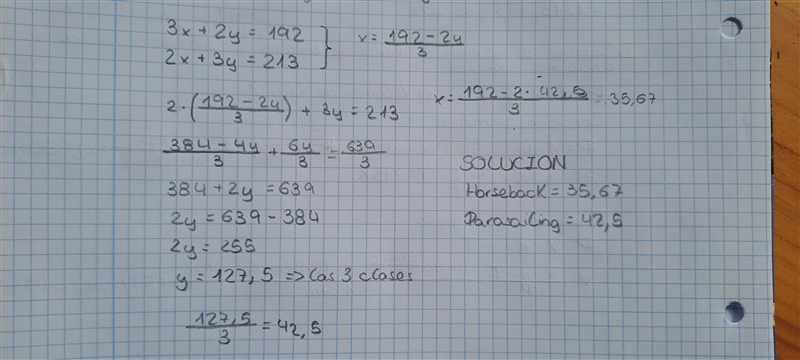 3x + 2y = 192
2x + 3y = 213
x = (192 - 2y)/3
2 · ((192 - 2y)/3) + 3y = 213
(384 - 4y)/3 + 6y/3 = 639/3
384 + 2y = 639
2y = 639 - 384
2y = 255
y = 127,5 => las 3 clases
127,5/3 = 42,5
x = (192 - 2 · 42,5)/3 = 35,67
SOLUCION
Horseback = 35,67
Parasailing = 42,5